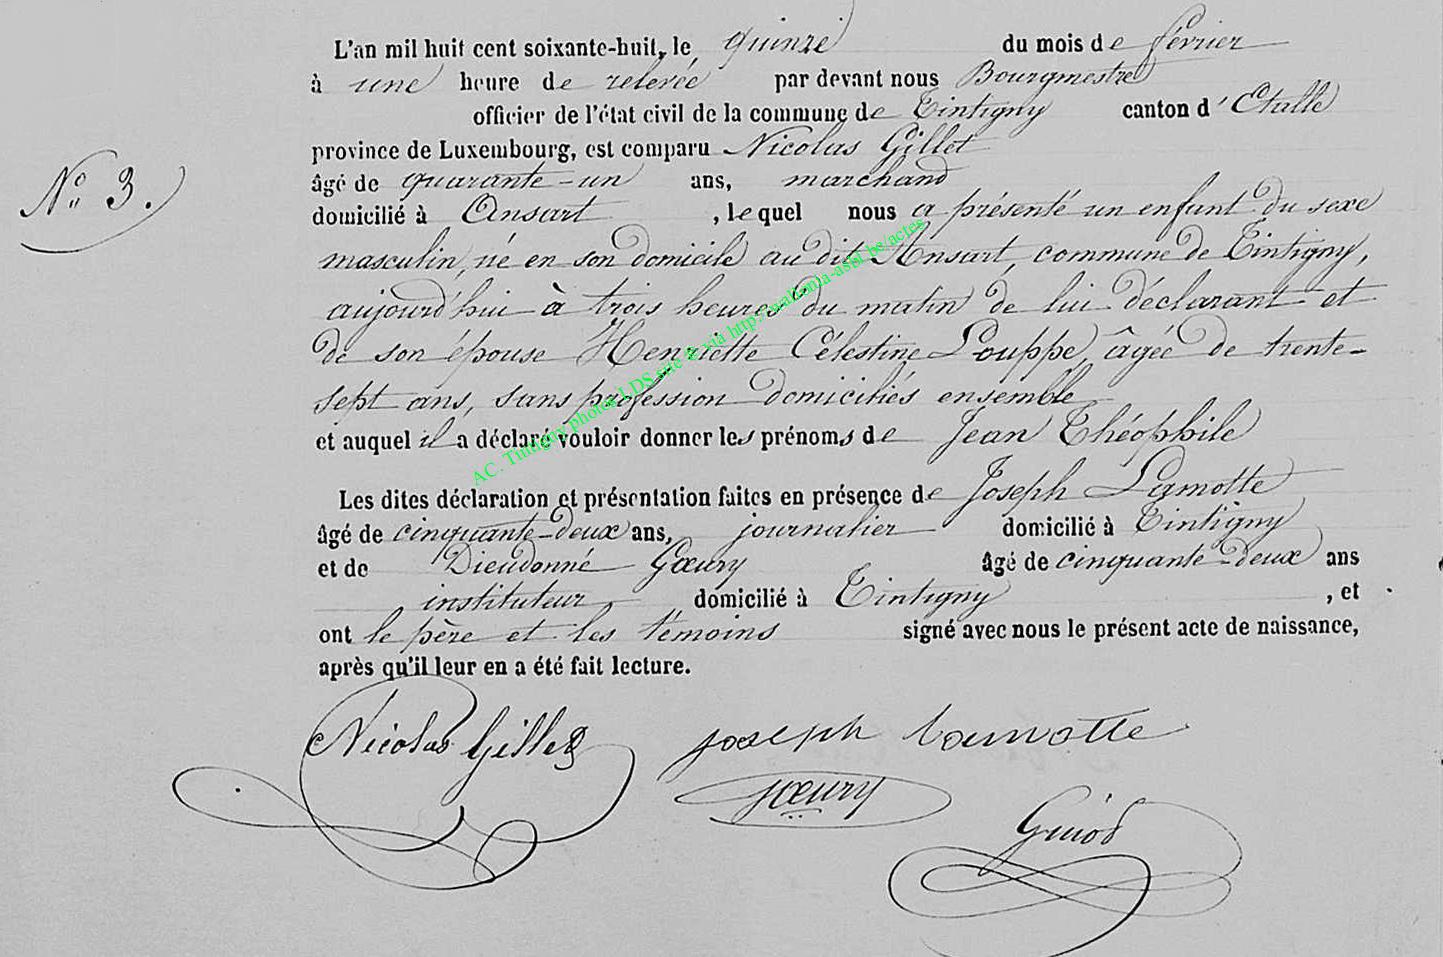 L'an mil huit cent soixante-huit, le quinze du mois de février
à une heure de relevée par devant nous Bourgmestre
officier de l'état civil de la commune de Tintigny canton d'Etalle
province de Luxembourg, est comparu Nicolas Gillet
âgé de quarante-un ans, marchand
N° 3.
domicilié à Ansart, lequel nous a présenté un enfant du sexe
masculin, né en son domicile au dit Ansart, commune de Tintigny,
aujourd'hui à trois heures du matin de lui déclarant et
de son épouse Henriette Célestine Louppe, âgée de trente-
sept ans, sans profession domiciliés ensemble
et auquel il a déclaré vouloir donner les prénoms de Jean Théophile
AC. Tintigny photos LDS sue & via http://wallonia-asbl.be/actes
Les dites déclaration et présentation faites en présence de Joseph Lamotte
âgé de cinquante-deux ans, journalier domicilié à Tintigny
et de Dieudonné Gœury âgé de cinquante-deux ans
instituteur domicilié à Tintigny, et
ont le père et les témoins signé avec nous le présent acte de naissance,
après qu'il leur en a été fait lecture.
Nicolas Gillet joseph lamotte
gœury